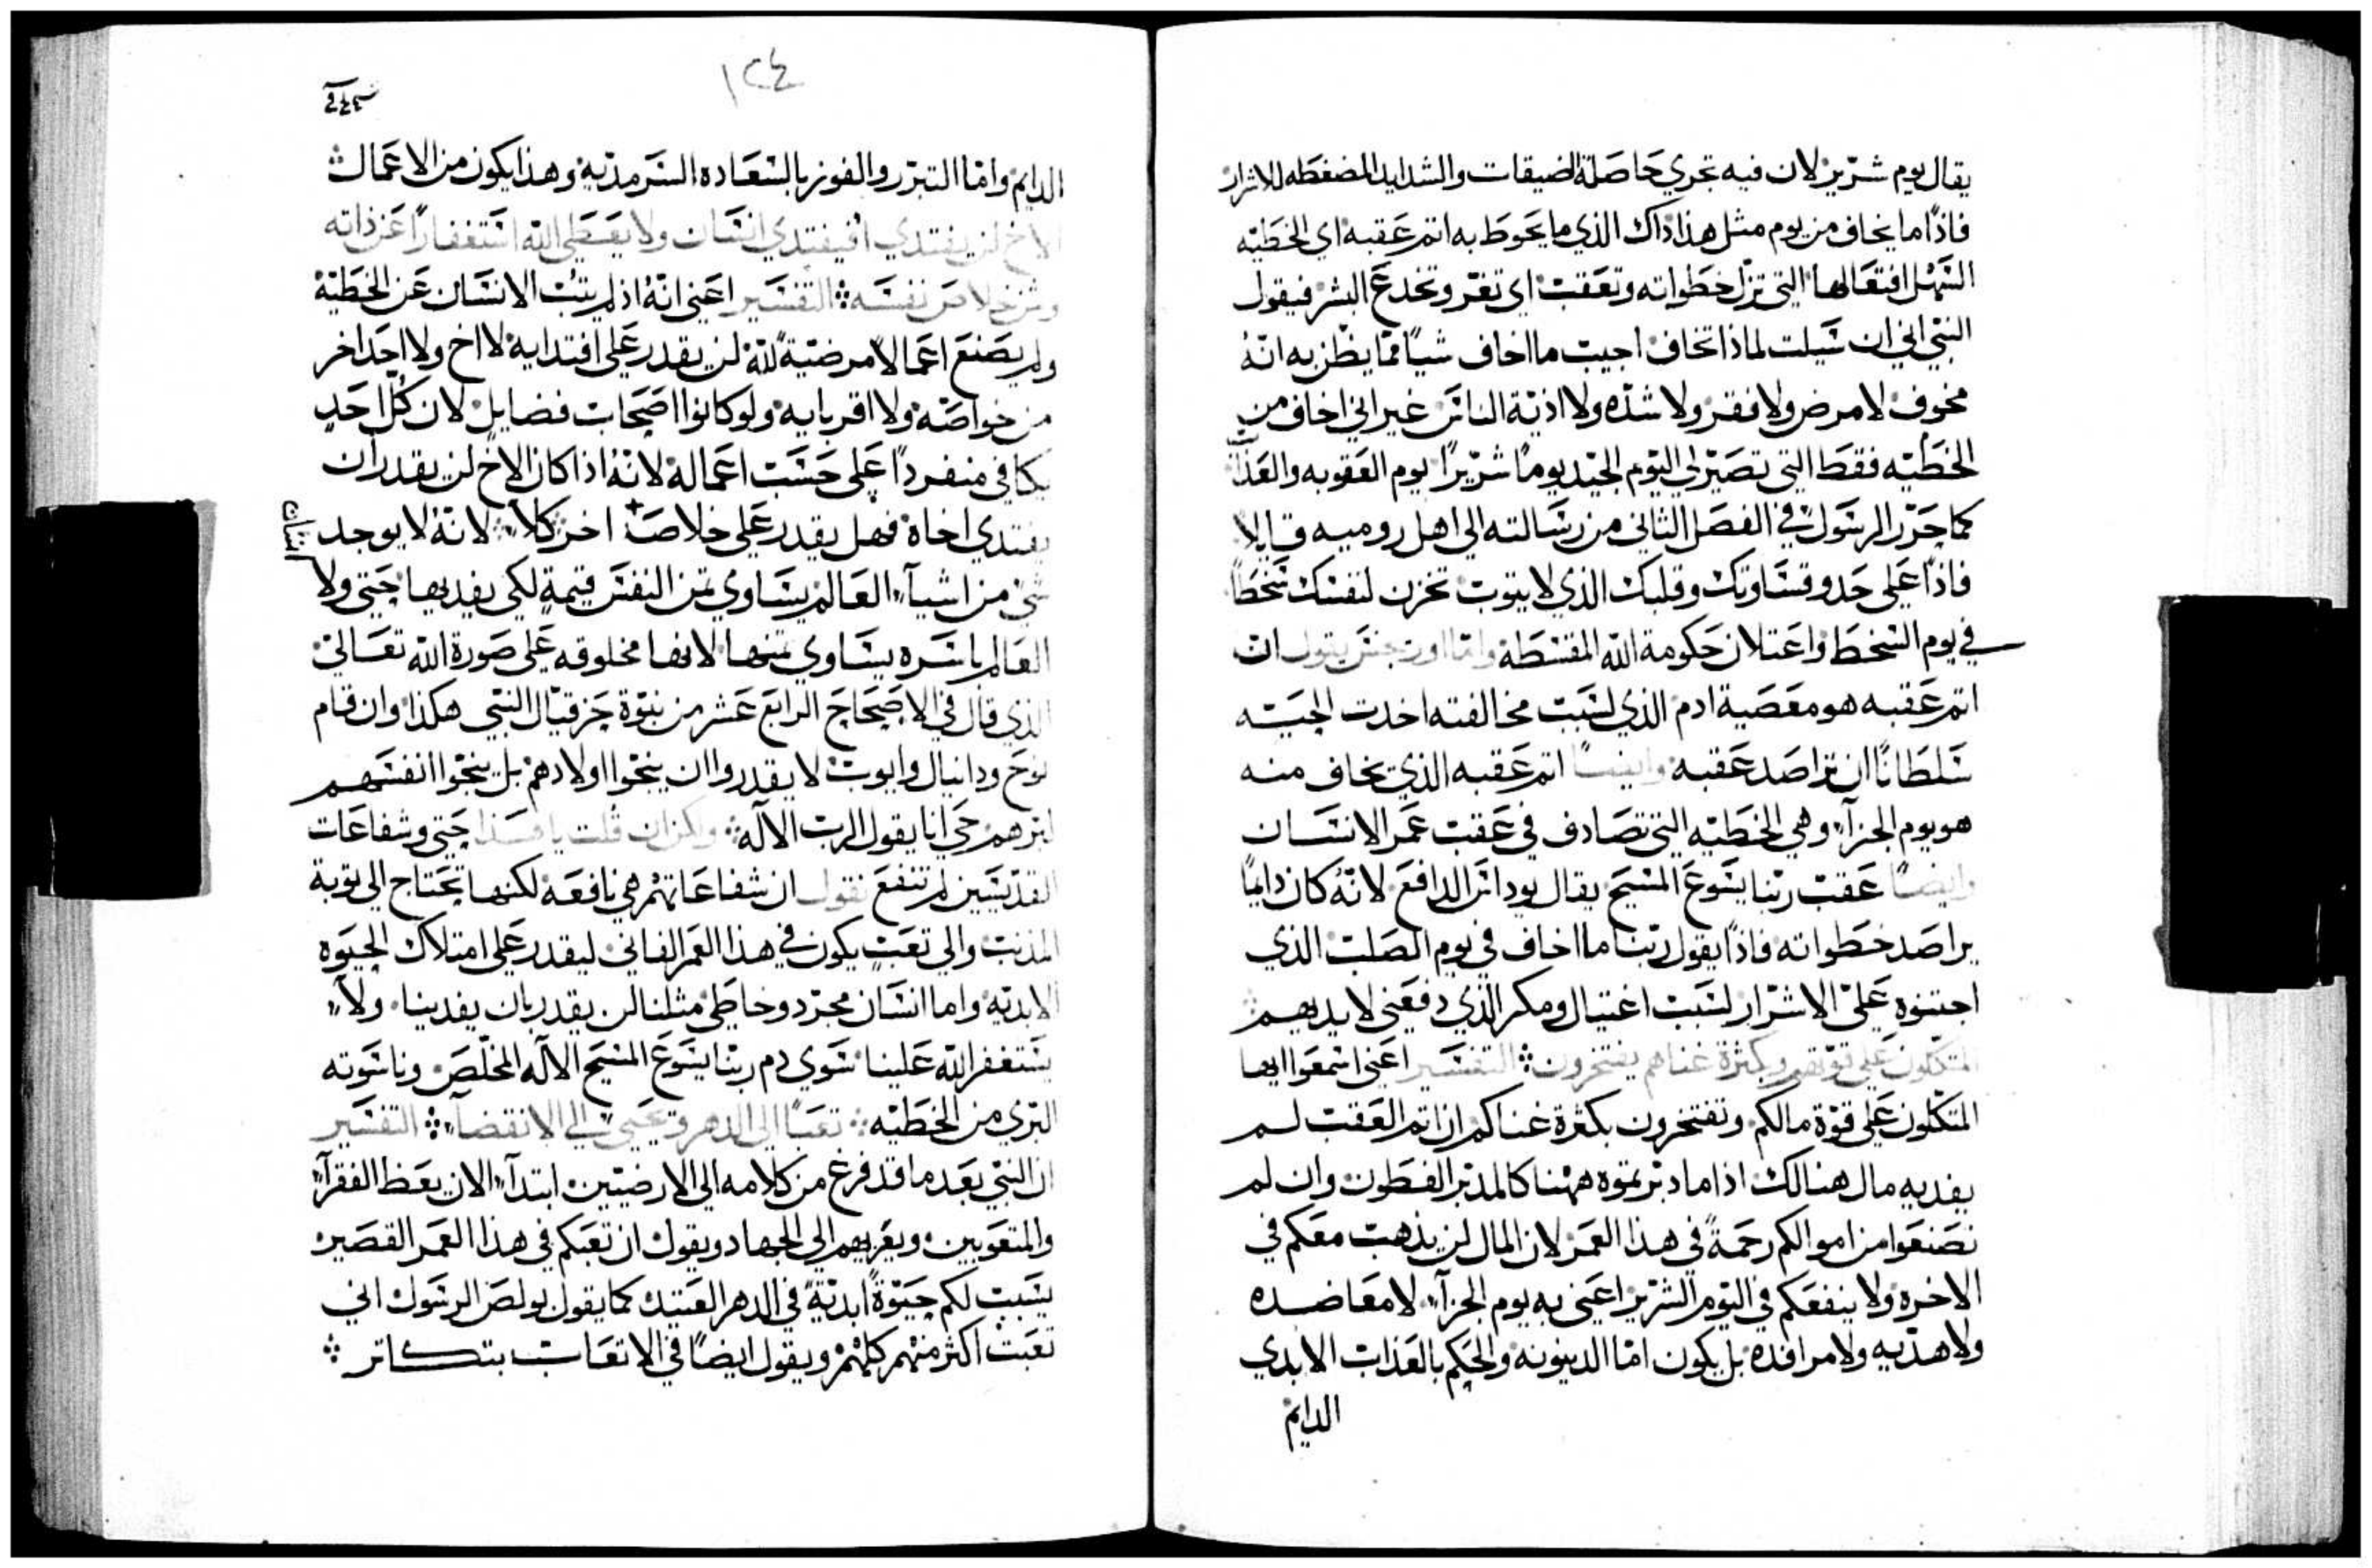 يقال يوم شرّير لان فيه تجري حاصلة الضيقات والشدايد المضغطه للاشرار
فاذًا ما يخاف من يوم مثل هذا ذاك الذي ما يحوط به اتم عقبه اي الخطيّه
السّهل افتعالها التي تزل خطواته وتعقب اي تغرّ وتخدع البشر فيقول
النبي اني ان سيلت لماذا تخاف اجيب ما اخاف شيًا ممّا يظن به انّهُ
مخوف لا مرض ولا فقر ولا شدّه ولا اذيّة الناس غير اني اخاف من
الخطيّه فقط التي تصيّر لي اليوم الجيّد يومًا شرّيرًا يوم العقوبه والعذاب
كما حرّر الرسول في الفصل الثاني من رسالته الى اهل روميه قايلا
فاذًا على حد وقساوتك وقلبك الذي لا يتوب تخزن لنفسك سخطًا
في يوم السخط واعتلان حكومة الله المقسطة وامّا اوريجنس يقول ان
اتم عقبه هو معصية ادم الذي لسبب مخالفته اخدت الحيّه
سلطانًا ان تراصد عقبه وايضًا اتم عقبه الذي يخاف منه
هو يوم الجزآء وهي الخطيّه التي تصادف في عقب عمر الانسان
وايضًا عقب ربّنا يسوع المسيح يقال يوداس الدافع لانّهُ كان دايمًا
يراصد خطواته فاذًا يقول ربّنا ما اخاف في يوم الصلب الذي
اجتنوه عليّ الاشرار لسبب اغتيال ومكر الذي دفعني لايديهم
المتّكلون على قوّتهم وبكثرة غناهم يفتخرون التفسير اعني اسمعوا ايها
المتّكلون على قوّة مالكم وتفتخرون بكثرة غناكم ان اتم العقب لم
يفديه مال هنالك اذا ما دبّرتموه ههنا كالمدبّر الفطون وان لم
تصنعوا من اموالكم رحمةً في هذا العمر لان المال لن يذهب معكم في
الاخرة ولا ينفعكم في اليوم الشرّير اعني به يوم الجزآء لا معاضده
ولا هديّه ولا مرافده بل يكون امّا الدينونه والحكم بالعذاب الابدي
الدايم
١٢٤
الدايم وامّا التبرّر والفوز بالسعاده السرمديّه وهذا يكون من الاعمال
الاخ لن يفتدي افيفتدي انسان ولا يعطي الله استغفارًا عن ذاته
وثمن خلاص نفسه التفسير اعني انّهُ اذ لم يتُب الانسان عن الخطيّة
ولم يصنع اعمالًا مرضيّةً للّه لن يقدر على افتدايه لا اخ ولا احد اخر
من خواصّه ولا اقربايه ولو كانوا اصحاب فضايل لان كلّ احدٍ
يكافى منفردًا على حسب اعماله لانّهُ اذا كان الاخ لن يقدر ان
يفتدي اخاه فهل يقدر على خلاص اخر كلّا لانّهُ لا يوجد
انسان
شي من اشيآء العالم يساوي ثمن النفس قيمةٍ لكي يفديها حتى ولا
العالم باسره يساوي ثمنها لانها مخلوقه على صورة الله تعالى
الذي قال في الاصحاح الرابع عشر من نبوّة حزقيال النبي هكذا وان قام
نوح ودانيال وايوب لا يقدروا ان ينجّوا اولادهم بل ينجّوا انفسهم
ببرّهم حي انا يقول الرب الاله ولكن ان قلت يا هذا حتى وشفاعات
القدّيسين لم تنفع نقول ان شفاعاتهم هي نافعه لكنها تحتاج الى توبة
المذنب والى تعبٍ يكون في هذا العمر الفاني ليقدر على امتلاك الحيوه
الابديّه واما انسان مجرّد وخاطي مثلنا لن يقدر بان يفدينا ولا
يستغفر الله علينا سوى دم ربّنا يسوع المسيح الاله المخلّص وناسوته
البري من الخطيّه تعبًا الى الدهر ويحيى الى الانقضآء التفسير
ان النبي بعد ما قد فرغ من كلامه الى الارضيّين ابتدآء الان يعظ الفقرآء
والمتعوبين ويعزيهم الى الجهاد ويقول ان تعبكم في هذا العمر القصير
يسبب لكم حيوةً ابديّةً في الدهر العتيد كما يقول بولص الرسول اني
تعبت اكثر منهم كلهم ويقول ايضًا في الاتعاب بتكاتر